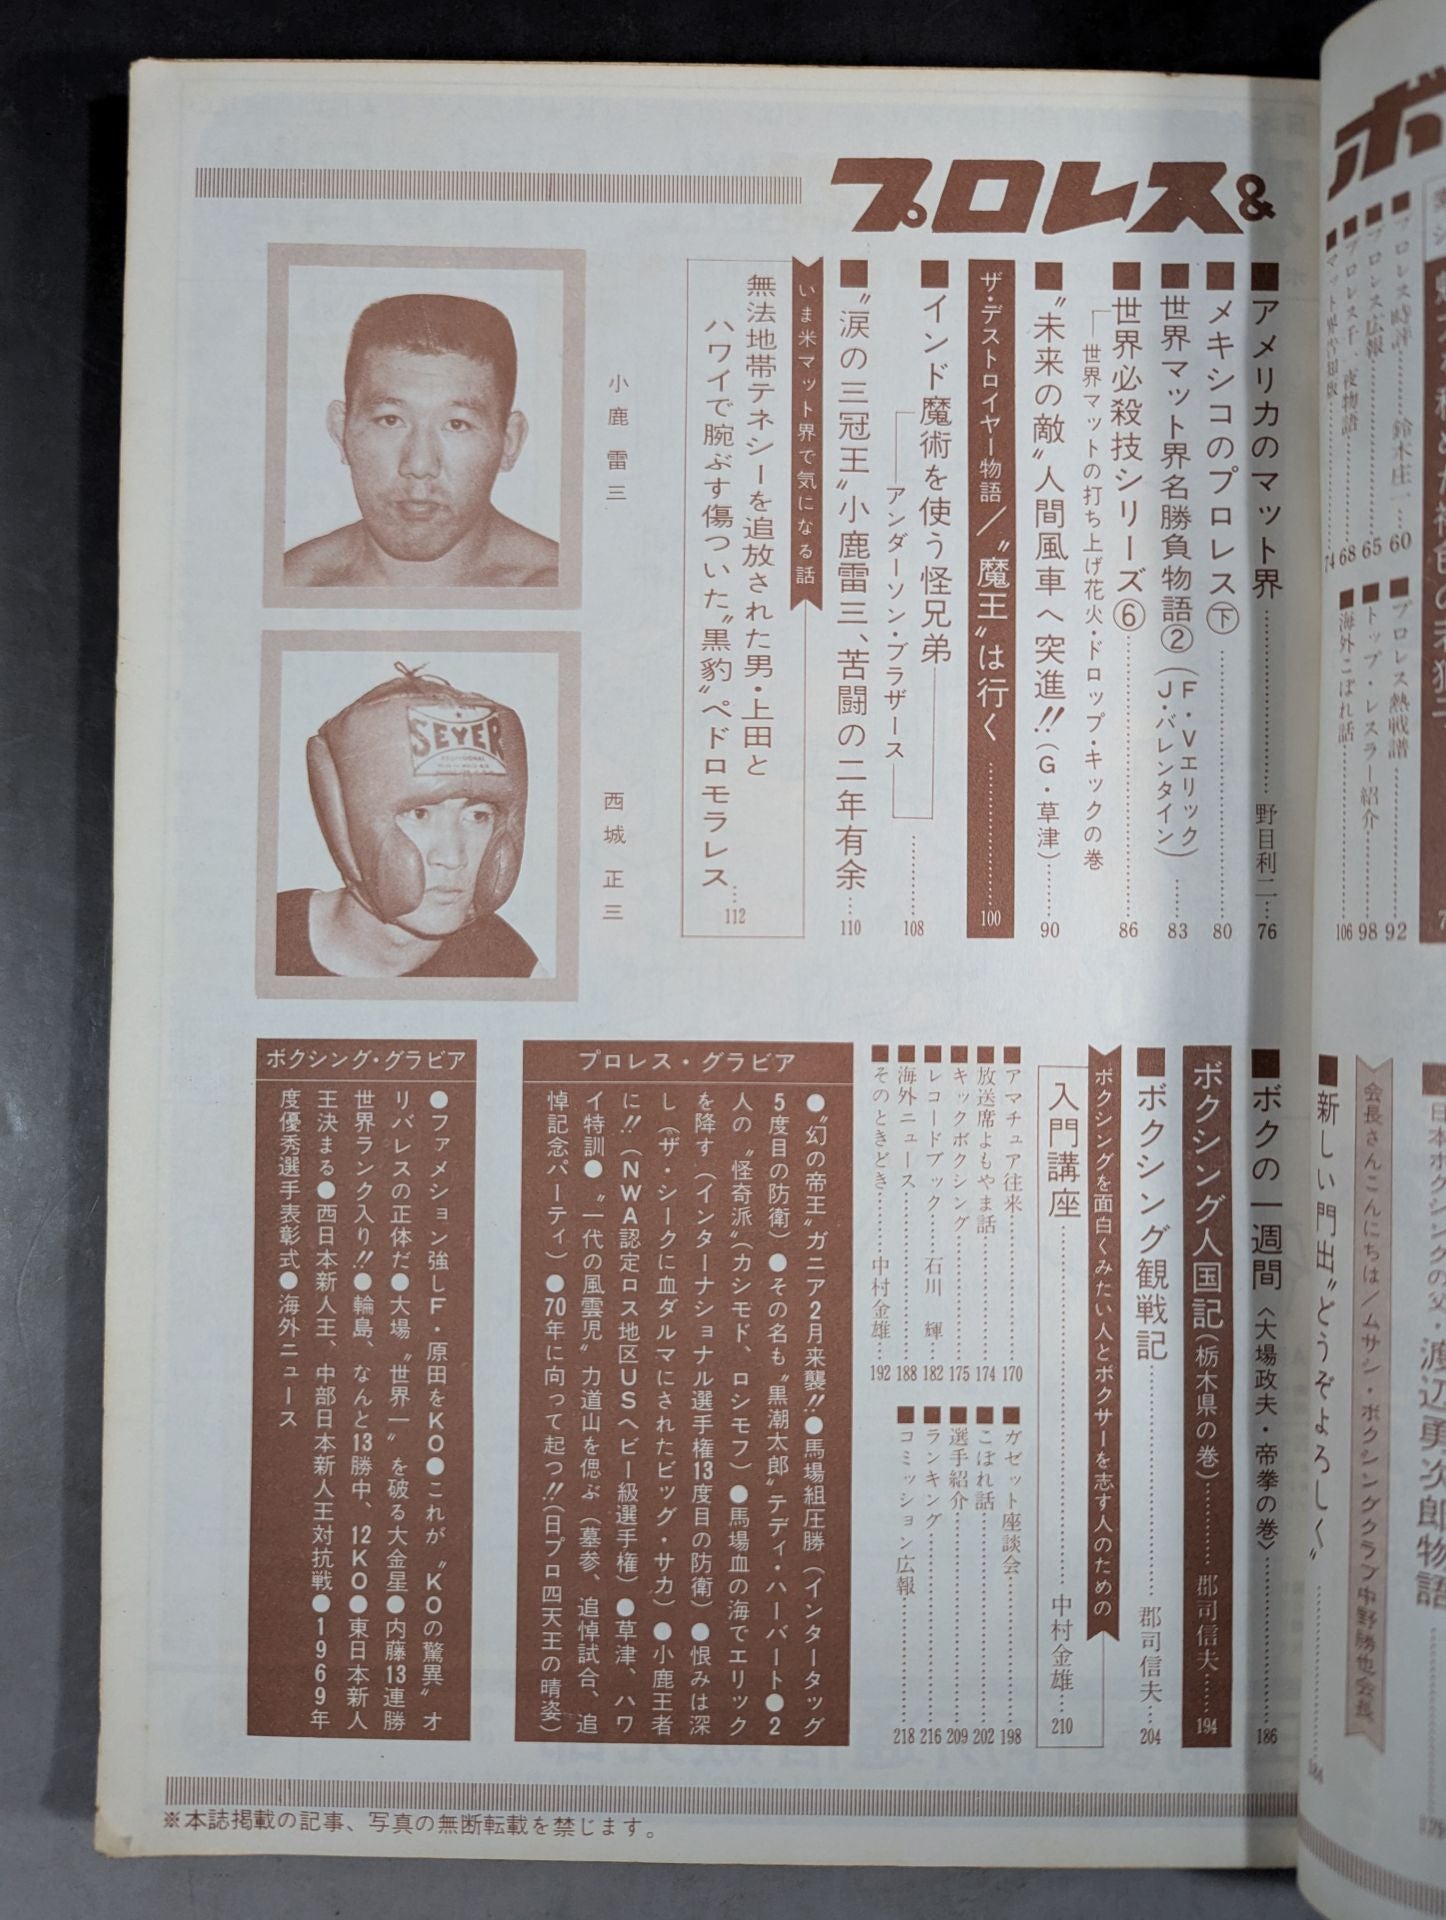 プロレス&
■アメリカのマット界……野目利二…76
■メキシコのプロレス㊦……80
■世界マット界名勝負物語②(F・Vエリック J・バレンタイン)……83
■世界必殺技シリーズ⑥……86
世界マットの打ち上げ花火・ドロップ・キックの巻
■〝未来の敵〟人間風車へ突進!!(G・草津)……90
ザ・デストロイヤー物語/〝魔王〟は行く……100
■インド魔術を使う怪兄弟……108
アンダーソン・ブラザース
■〝涙の三冠王〟小鹿雷三、苦闘の二年有余…110
いま米マット界で気になる話
無法地帯テネシーを追放された男・上田と
ハワイで腕ぶす傷ついた〝黒豹〟ペドロモラレス…112
小鹿雷三
SEYER
PROFESSIONAL
西城正三
■プロレス時評……鈴木庄一 60
■プロレス広報……65
■プロレス千一夜物語……68
74
■プロレス熱戦譜……92
■トップ・レスラー紹介……98
■海外こぼれ話……106
ボ
日本ボクシングの父・渡辺勇次郎物語
会長さんこんにちは/ムサシ・ボクシングクラブ中野勝也会長
■新しい門出〝どうぞよろしく〟……
■ボクの一週間〈大場政夫・帝拳の巻〉……186
ボクシング人国記(栃木県の巻)……郡司信夫……194
■ボクシング観戦記……郡司信夫…204
ボクシングを面白くみたい人とボクサーを志す人のための
入門講座……中村金雄…210
■アマチュア往来……170
■放送席よもやま話……174
■キックボクシング……175
■レコードブック……石川 輝…182
■海外ニュース……188
■そのときどき……中村金雄…192
■ガゼット座談会……198
■こぼれ話……202
■選手紹介……209
■ランキング……216
■コミッション広報……218
プロレス・グラビア
●〝幻の帝王〟ガニア2月来襲!!●馬場組圧勝(インタータッグ
5度目の防衛)●その名も〝黒潮太郎〟テディ・ハーバート●2
人の〝怪奇派〟(カシモド、ロシモフ)●馬場血の海でエリック
を降す(インターナショナル選手権13度目の防衛)●恨みは深
し(ザ・シークに血ダルマにされたビッグ・サカ)●小鹿王者
に!!(NWA認定ロス地区USヘビー級選手権)●草津、ハワ
イ特訓●〝一代の風雲児〟力道山を偲ぶ(墓参、追悼試合、追
悼記念パーティ)●70年に向って起つ!!(日プロ四天王の晴姿)
ボクシング・グラビア
●ファメション強しF・原田をKO●これが〝KOの驚異〟オ
リバレスの正体だ●大場〝世界一〟を破る大金星●内藤13連勝
世界ランク入り!!●輪島、なんと13勝中、12KO●東日本新人
王決まる●西日本新人王、中部日本新人王対抗戦●1969年
度優秀選手表彰式●海外ニュース
※本誌掲載の記事、写真の無断転載を禁じます。